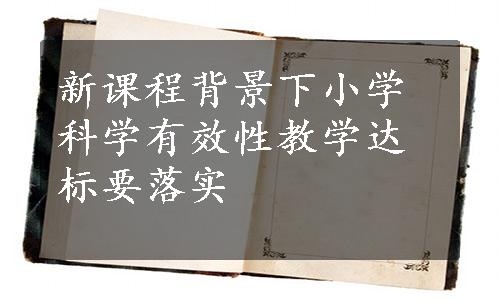 新课程背景下小学
科学有效性教学达
标要落实